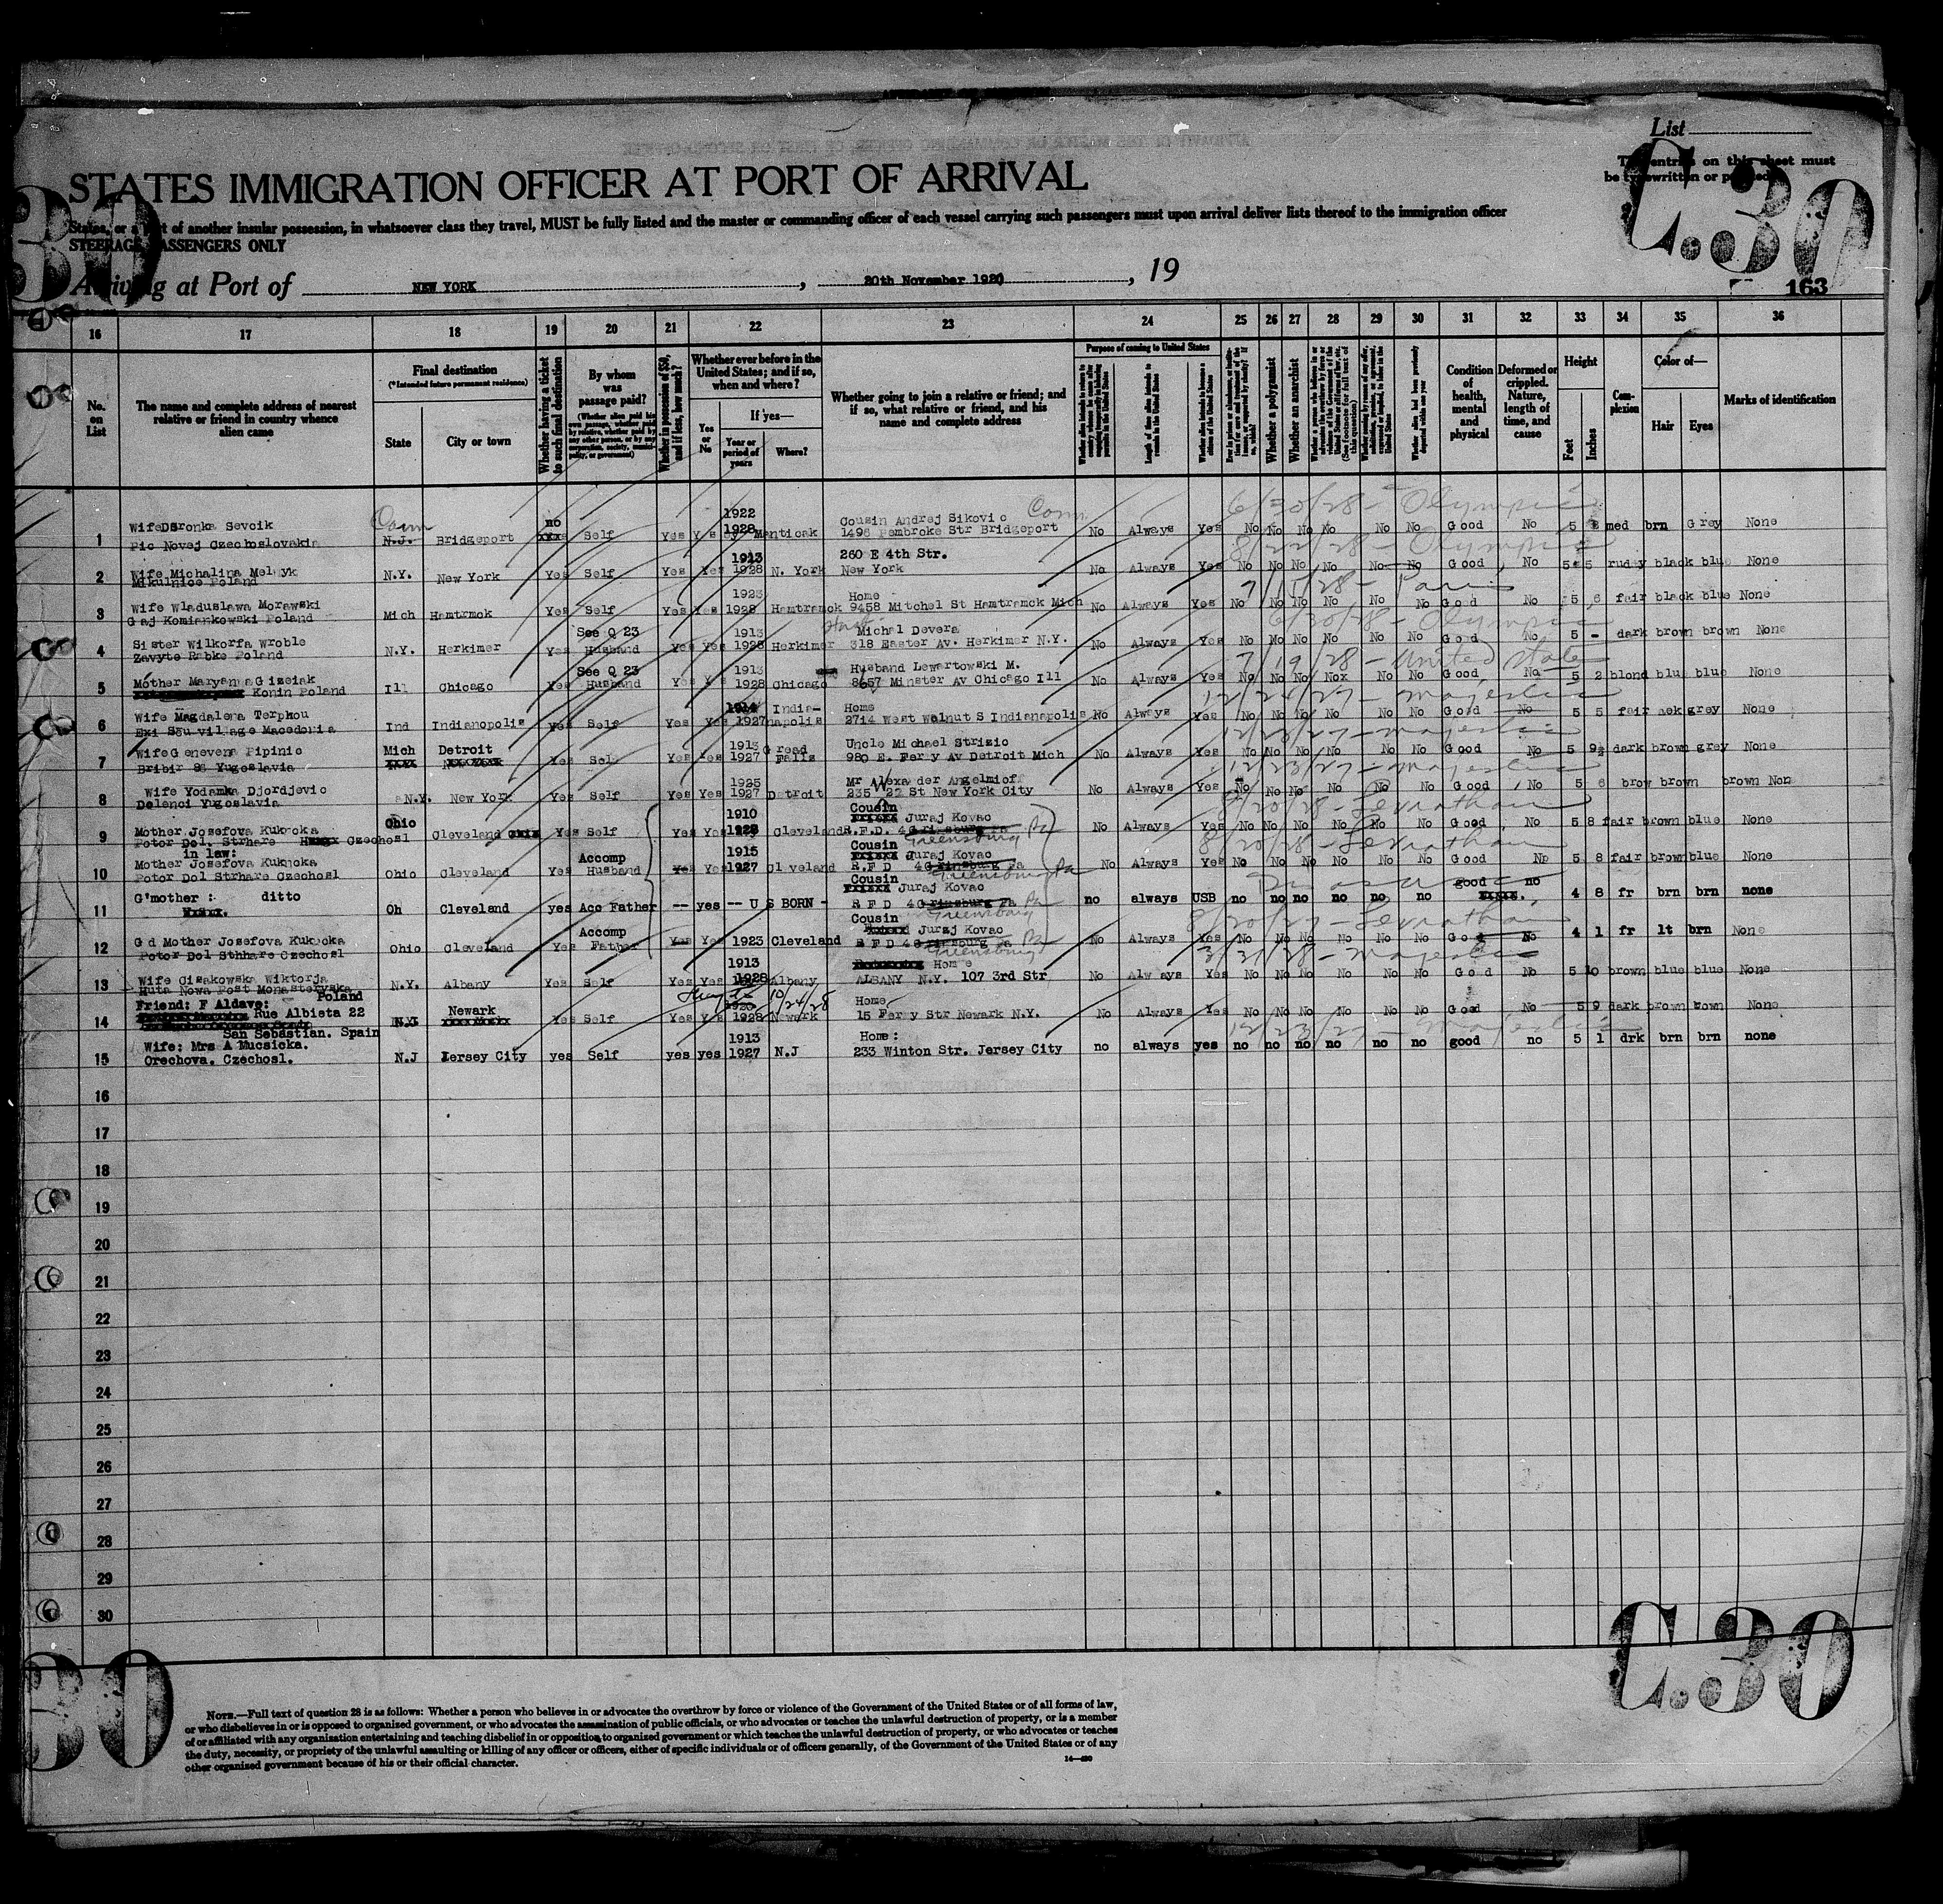 List
The entries on this sheet must
be typewritten or printed
C.30
30
STATES IMMIGRATION OFFICER AT PORT OF ARRIVAL
States, or a part of another insular possession, in whatsoever class they travel, MUST be fully listed and the master or commanding officer of each vessel carrying such passengers must upon arrival deliver lists thereof to the immigration officer
STEERAGE PASSENGERS ONLY
Arriving at Port of NEW YORK, 20th November 1928, 19
163
16 17 18 19 20 21 22 23 24 25 26 27 28 29 30 31 32 33 34 35 36
No. on List
The name and complete address of nearest relative or friend in country whence alien came
Final destination
(*Intended future permanent residence)
State
City or town
Whether having a ticket to such final destination
By whom was passage paid?
(Whether alien paid his own passage, whether paid by relative, whether paid by any other person, or by any corporation, society, municipality, or government)
Whether in possession of $50, and if less, how much?
Whether ever before in the United States; and if so, when and where?
Yes or No
If yes—
Year or period of years
Where?
Whether going to join a relative or friend; and if so, what relative or friend, and his name and complete address
Purpose of coming to United States
Length of time alien intends to remain in the United States
Whether alien intends to become a citizen of the United States
Whether a polygamist
Whether an anarchist
Condition of health, mental and physical
Deformed or crippled. Nature, length of time, and cause
Height
Feet
Inches
Complexion
Color of—
Hair
Eyes
Marks of identification
6/30/28 - Olympic
1 Wife Sevcik Conn N.J. Bridgeport no Self Yes 1922 1928 Cousin Andrej Sikovic Conn No Always Yes No No No No No No Good No 5 med brn Grey None
Pic Novej Czechoslovakia 1496 Pembroke Str Bridgeport
8/22/28 - Olympic
2 Wife Michalina N.Y. New York Yes Self Yes Yes 1913 1928 N. York 260 E 4th Str. No Always Yes No No No No No No Good No 5 5 rudy black blue None
Mikulnice Poland New York
7/15/28 - Paris
3 Wife Wladuslawa Morawski Mich Hamtrmck Yes Self Yes Yes 1923 1928 Hamtramck Home No Always Yes No No No No No No Good No 5 6 fair black blue None
Gaj Komiankowski Poland 9458 Mitchel St Hamtramck Mich
6/30/28 - Olympic
4 Sister Wilkorfa Wroble N.Y. Herkimer Yes See Q 23 Husband Yes Yes 1913 1928 Herkimer Michal Devera No Always Yes No No No No No No Good No 5 - dark brown brown None
Zavyte Rabke Poland 318 Easter Av. Herkimer N.Y.
7/19/28 - United States
5 Mother Maryanna Gizeiak Ill Chicago Yes See Q 23 Husband Yes Yes 1913 1928 Chicago Husband Lewartowski M. No Always Yes No No No Nox No No Good No 5 2 blond blu blue None
Konin Poland 8657 Minster Av Chicago Ill
12/24/27 - Majestic
6 Wife Magdalena Terphou Ind Indianopolis yes Self Yes Yes 1914 1927 Indianapolis Home No Always Yes No No No No No No Good No 5 5 fair grey None
Exi Sou village Macedonia 2714 West Walnut S Indianapolis
12/23/27 - Majestic
7 Wife Genevena Pipinic Mich Detroit Yes Self Yes Yes 1913 1927 Great Falls Uncle Michael Strizic No Always Yes No No No No No No Good No 5 9½ dark brown grey None
Bribir 88 Yugoslavia 980 E. Ferry Av Detroit Mich
12/23/27 - Majestic
8 Wife Yodamka Djordjevic N.Y. New York Yes Self Yes Yes 1925 1927 Detroit Mr Alexander Angelmioff No Always Yes No No No No No No Good No 5 6 brow brown brown Non
Delenci Yugoslavia 235 22 St New York City
8/20/28 - Leviathan
9 Mother Josefova Kuknoka Ohio Cleveland Yes Self Yes Yes 1910 1928 Cleveland Cousin Juraj Kovac No Always Yes No No No No No No Good No 5 8 fair brown blue None
Potor Dol. Strhare Czechosl R.F.D. 4 Greensburg Pa
8/20/28 - Leviathan
10 in law: Mother Josefova Kuknoka Ohio Cleveland Yes Accomp Husband Yes Yes 1915 1927 Cleveland Cousin Juraj Kovac No Always Yes No No No No No No Good No 5 8 fair brown blue None
Potor Dol Strhare Czechosl R.F D 4 Greensburg Pa
11 G'mother : ditto Oh Cleveland yes Acc Father -- yes -- U S BORN - Cousin Juraj Kovac no always USB no no no no no no good no 4 8 fr brn brn none
R F D 4 Greensburg Pa
8/20/27 - Leviathan
12 Gd Mother Josefova Kuknoka Ohio Cleveland Yes Accomp Father Yes Yes 1923 Cleveland Cousin Juraj Kovac No Always Yes No No No No No No Good No 4 1 fr lt brn None
Potor Dol Sthhare Czechosl R F D 4 Greensburg Pa
3/31/28 - Majestic
13 Wife Cizakowska Wiktorja N.Y. Albany Yes Self Yes Yes 1913 1928 Albany Home No Always Yes No No No No No No Good No 5 10 brown blue blue None
Huta Nowa Post Monasteryska Poland ALBANY N.Y. 107 3rd Str
10/24/28
14 Friend: F Aldave: Rue Albieta 22 N.Y. Newark Yes Self Yes Yes 1928 Newark Home No Always Yes No No No No No No Good No 5 9 dark brown brown None
San Sebastian. Spain 15 Ferry Str Newark N.Y.
12/23/27 - Majestic
15 Wife: Mrs A Mucsicka. N.J Jersey City yes Self yes yes 1913 1927 N.J Home: no always yes no no no no no no good no 5 1 drk brn brn none
Orechova. Czechosl. 233 Winton Str. Jersey City
16
17
18
19
20
21
22
23
24
25
26
27
28
29
30
C.30
30
NOTE.—Full text of question 28 is as follows: Whether a person who believes in or advocates the overthrow by force or violence of the Government of the United States or of all forms of law,
or who disbelieves in or is opposed to organized government, or who advocates the assassination of public officials, or who advocates or teaches the unlawful destruction of property, or is a member
of or affiliated with any organization entertaining and teaching disbelief in or opposition to organized government or which teaches the unlawful destruction of property, or who advocates or teaches
the duty, necessity, or propriety of the unlawful assaulting or killing of any officer or officers, either of specific individuals or of officers generally, of the Government of the United States or of any
other organized government because of his or their official character.